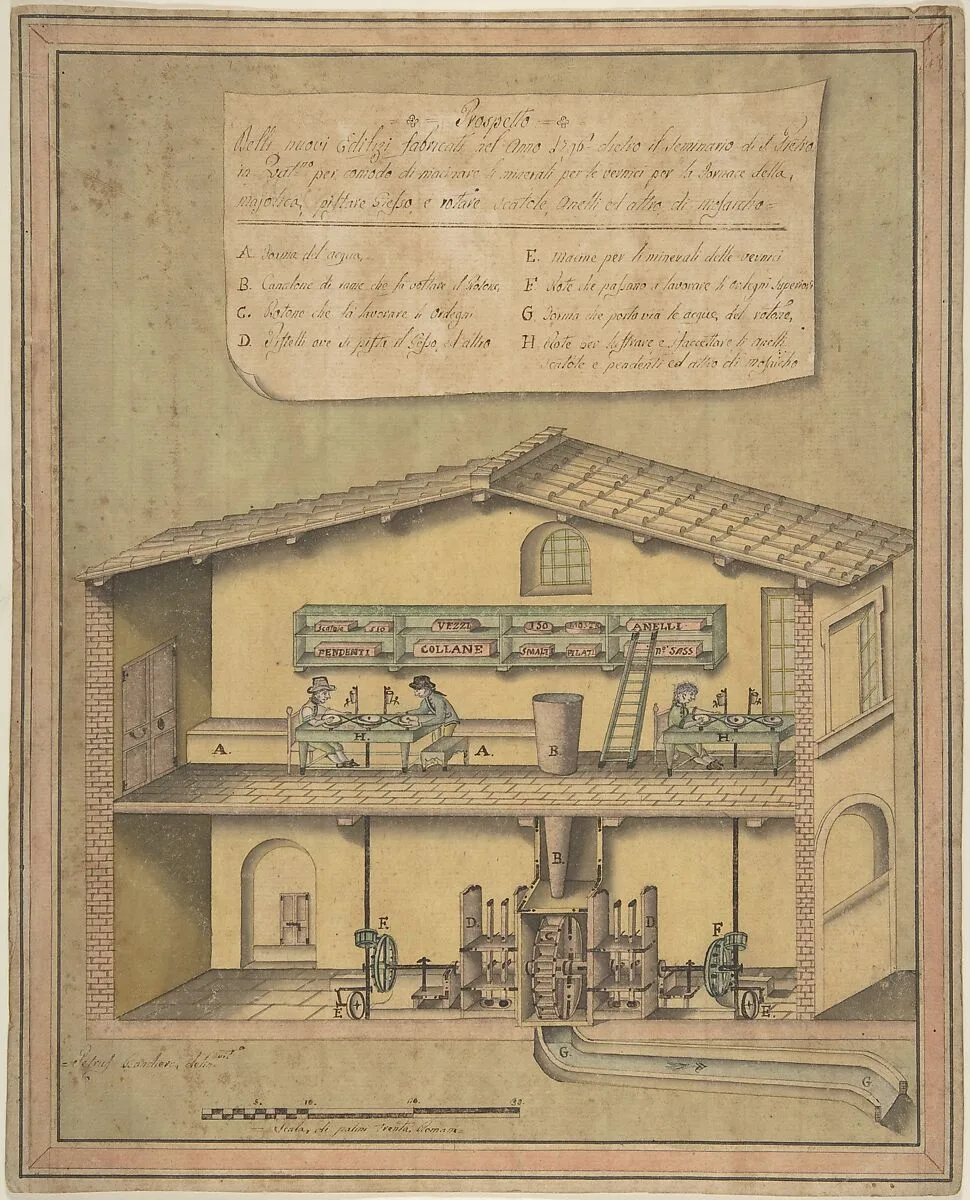 Prospetto
Delli nuovi Edifizi fabricati nel Anno dietro il Seminario di S. Pietro
in per comodo di macinare li minerali per le vernici per la Fornace della
majolica, pistare Gesso, e rotare Scatole, Anelli ed altro di mosaicho
A. Forma del acqua,
B. Canalone di rame che fà voltare il Rotone,
C. Rotone che fà lavorare li ordegni
D. Pistelli ove si pista il Gesso, ed altro
E. Macine per li minerali delle vernici
F. Rote che passano a lavorare li ordegni Superiori
G. Forma che porta via le acque, del rotone,
H. Rote per lustrare e sfaccettare li anelli
Scatole e pendenti ed altro di mosaicho
Scatole 510 VEZZI 150 MOSTR ANELLI
PENDENTI COLLANE SMALTI PILATI SASS
H.
H.
A.
A.
B.
B.
D.
C
D.
F.
F.
E
E.
G.
G
5. 10. 30.
Scala, di palmi Trenta, Roman